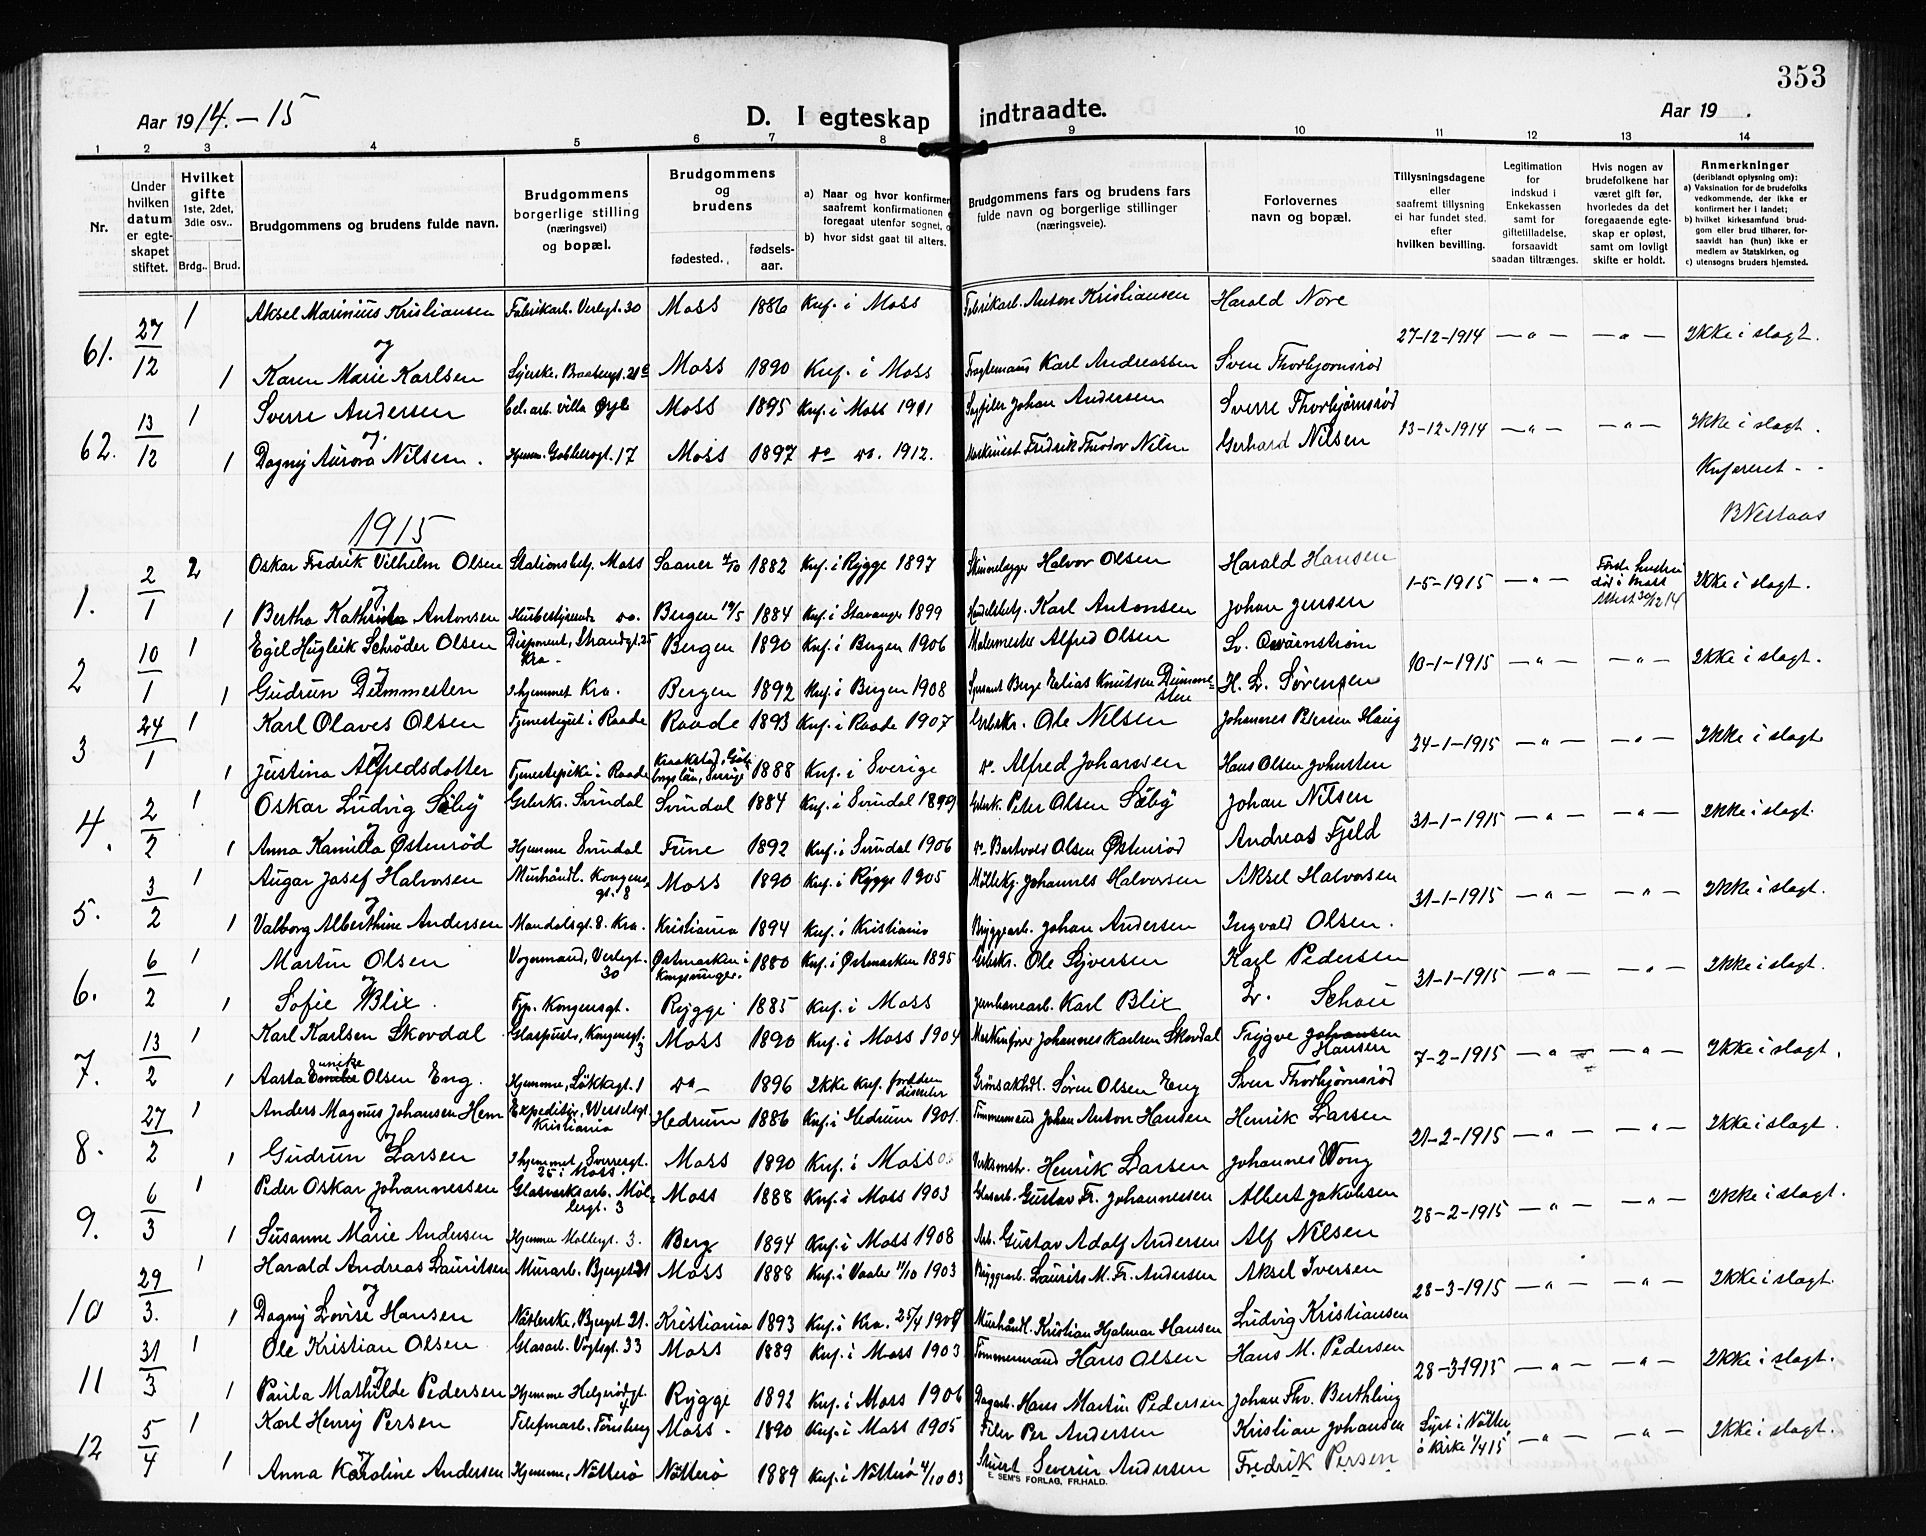 353
Aar 1914.-15
D. I egteskap indtraadte.
Aar 19 .
1 2 3 4 5 6 7 8 9 10 11 12 13 14
Nr.
Under hvilken datum er egteskapet stiftet.
Hvilket gifte 1ste, 2det, 3die osv..
Brdg.. Brud.
Brudgommens og brudens fulde navn.
Brudgommens borgerlige stilling (næringsvei) og bopæl.
Brudgommens og brudens
fødested. fødsels-aar.
a) Naar og hvor konfirmer
saafremt konfirmationen
foregaat utenfor sognet, o
b) hvor sidst gaat til alters.
Brudgommens fars og brudens fars
fulde navn og borgerlige stillinger
(næringsveie).
Forlovernes
navn og bopæl.
Tillysningsdagene
eller
saafremt tillysning
ei har fundet sted.
efter
hvilken bevilling.
Legitimation
for
indskud i
Enkekassen
samt for
giftetilladelse,
forsaavidt
saadan tiltrænges.
Hvis nogen av
brudefolkene har
været gift før,
hvorledes da det
foregaaende egte-
skap er opløst,
samt om lovligt
skifte er holdt.
Anmerkninger
(deriblandt oplysning om):
a) Vaksination for de brudefolks
vedkommende, der ikke er
konfirmert her i landet;
b) hvilket kirkesamfund brud-
gom eller brud tilhører, for-
saavidt han (hun) ikke er
medlem av Statskirken, og
c) utensogns bruders hjemsted.
61. 27/12 1 Aksel Marinius Kristiansen Fabrikarb. Verlegt. 30 Moss 1886 Knf. i Moss Fabrikarb. Anton Kristiansen Harald Nore 27-12-1914 — „ — — „ — Ikke i slagt.
og
1 Karen Marie Karlsen Syerske. Moss 1890 Knf. i Moss Fragtemans Karl Andreassen Sven Thorbjørnsrød
62. 13/12 1 Sverre Andersen Moss 1895 Knf. i Moss 1911 Sagfiler Johan Andersen Sverre Thorbjørnsrød 13-12-1914 — „ — — „ — Ikke i slagt.
og
1 Dagny Aurora Nilsen. Hjemm. 17 Moss 1897 do do. 1912. Maskinist Fredrik Theodor Nilsn Gerhard Nilsen
Knfereret - -
BNestaas
1915
1. 2/1 2 Oskar Fredrik Vilhelm Olsen Stationsbetj. Moss Saaner 4/10 1882 Knf. i Rygge 1897 Halvor Olsen Harald Hansen 1-5-1915 — „ — Første hustru død i Moss Attest 30/12 14 Ikke i slagt.
og
1 Bertha Kathrine Antonsen Husbestyrende do. Bergen 19/5 1884 Knf. i Stavanger 1899 Handelsbetj. Karl Antonsen Johan Jensen
2 10/1 1 Egil Hugleik Schrøder Olsen Disponent, Strandgt. 25 Kra. Bergen 1890 Knf. i Bergen 1906 Malermester Alfred Olsen Sv. Qvarnstrøm 10-1-1915 — „ — — „ — Ikke i slagt.
og
1 Gudrun Dimmesten I hjemmet Kra. Bergen 1892 Knf. i Bergen 1908 Berge Eelias Knutsen Dimme-sten H. L. Sørensen
3 24/1 1 Karl Olaves Olsen Tjenestegut i Raade Raade 1893 Knf. i Raade 1907 Grbrkr. Ole Nilsen Johannes Petersen Haug 24-1-1915 — „ — — „ — Ikke i slagt
og
1 Justina Alfredsdotter Tjenestepike i Raade 1888 Knf. i Sverige do Alfred Johansen Hans Olsen Johnsten
4. 2/2 1 Oskar Ludvig Sæby Grbrk. Svindal Svindal 1884 Knf. i Svindal 1899 Grbrk. Peter Olsen Sæby Johan Nilsen 31-1-1915 — „ — — „ — Ikke i slagt.
og
1 Anna Kamilla Østenrød Hjemme Svindal Tune 1892 Knf. i Svindal 1906 do Bertvold Olsen Østenrød Andreas Fjeld
5. 3/2 1 Augar Josef Halvorsen Murhåndl. Kongens-gt. 8 Moss 1890 Knf. i Rygge 1905 Møllekj. Johannes Halvorsen Aksel Halvorsen 31-1-1915 — „ — — „ — Ikke i slagt.
og
1 Valborg Alberthine Andersen Mandalsgt. 8. Kra. Kristiania 1894 Knf. i Kristiania Bryggearb. Johan Andersen Ingvald Olsen.
6. 6/2 1 Martin Olsen Vognmand, Verlegt. 30 Østmarken i Kongsvinger. 1880 Knf. i Østmarken 1895 Grbrkr. Ole Syversen Karl Pedersen 31-1-1915 — „ — — „ — Ikke i slagt.
og
1 Sofie Blix. Tjp. Kongensgt. Rygge 1885 Knf. i Moss Jernbanearb. Karl Blix Lr. Schou
7. 13/2 1 Karl Karlsen Skovdal Glaspuds, Kongensgt. 3 Moss 1890 Knf. i Moss 1904 Johannes Karlsen Skovdal Trygve Johansen Hansen 7-2-1915 — „ — — „ — Ikke i slagt.
1 Aasta Emelie unike Olsen Eng. Hjemme, Løkkegt. 1 do 1896 Ikke knf. fordden dissenter Grønsakhdl. Søren Olsen Eng Sven Thorbjørnsrød
8. 27/2 1 Anders Magnus Johansen Hem Expeditør, Wesselsgt. Kristiania Hedrum 1886 Knf. i Hedrum 1901. Tømmermand Johan Anton Hansen Henrik Larsen 21-2-1915 — „ — — „ — Ikke i slagt.
og
1 Gudrun Larsen I hjemmet, Sverregt. 25 i Moss. Moss 1890 Knf. i Moss 05 Verksmstr. Henrik Larsen Johannes Wong
9. 6/3 1 Peder Oskar Johannessen Glasverksarb. Møl-lergt. 3 Moss 1888 Knf. i Moss 1903 Glasarb. Gustav Fr. Johannessen Albert Jakobsen 28-2-1915 — „ — — „ — Ikke i slagt.
og
1 Susanne Marie Andersen Hjemme Møllegt. 3. Berg 1894 Knf. i Moss 1908 Arb. Gustav Adolf Andersen Alf Nilsen
10 29/3. 1 Harald Andreas Lauritsen Murarb. Bjerget 21 Moss 1888 Knf. i Vaaler 11/10 1903 Bryggearb. Laurits M. Fr. Andersen Aksel Iversen 28-3-1915 — „ — — „ — Ikke i slagt.
og
1 Dagny Lovise Hansen Nåtlerske. Bjerget 21. Kristiania 1893 Knf. i Kra. 25/4 1909 Murhåndl. Kristian Hjalmar Hansen Ludvig Kristiansen
11 31/3 1 Ole Kristian Olsen Glasarb. Vogtsgt. 33 Moss 1889 Knf. i Moss 1903 Tømmermand Hans Olsen Hans M. Pedersen 28-3-1915 — „ — — „ — Ikke i slagt.
og
1 Paula Mathilde Pedersen Hjemme Helgerødgt. 4 Rygge 1892 Knf. i Moss 1906 Dagarb. Hans Martin Pedersen Johan Thv. Berthling
12 5/4 1 Karl Henry Persen Telefonarb. Tønsberg Moss. 1890 Knf. i Moss 1905 Filer Per Andersen Kristian Johansen Lyst i Nøtterø kirke 1/4 15 — „ — — „ — Ikke i slagt.
og
1 Anna Karoline Andersen Hjemme, Nøtterø Nøtterø 1889 Knf. i Nøtterø 4/10 03 Severin Andersen Fredrik Persen
E. SEM'S FORLAG, FR.HALD.